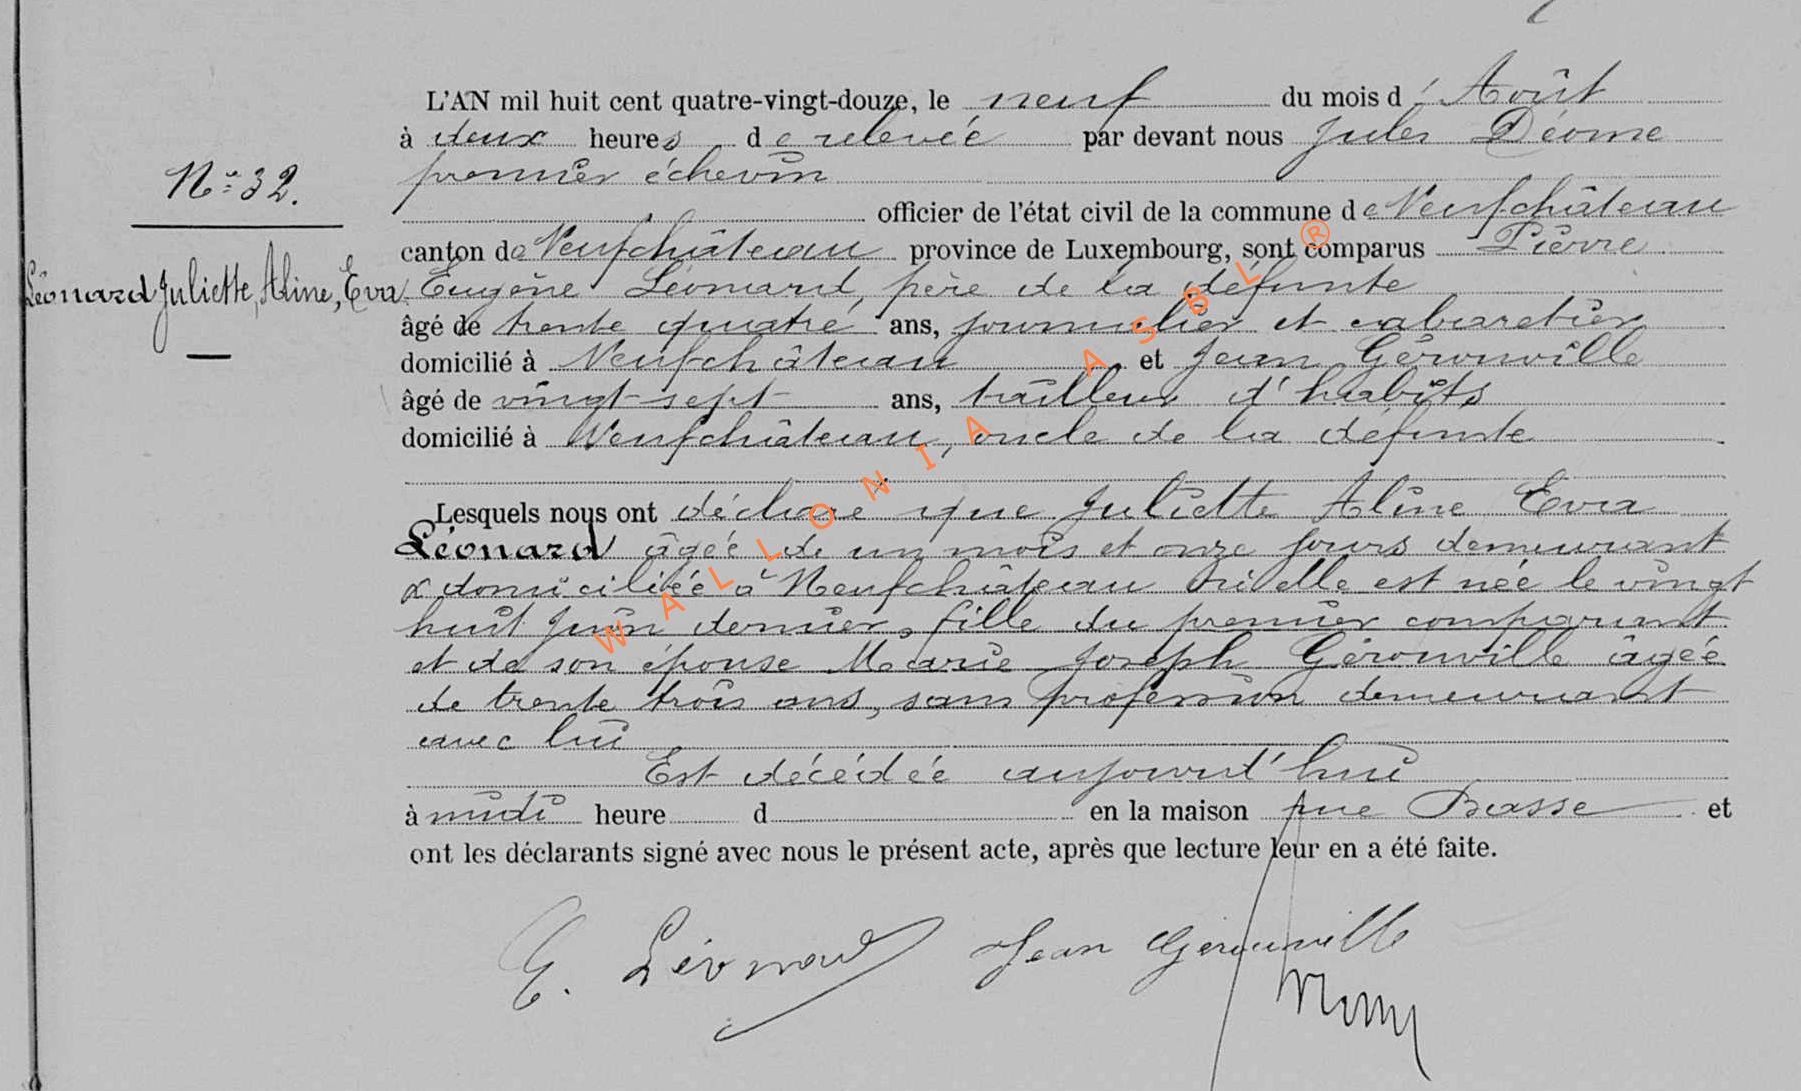 L'AN mil huit cent quatre-vingt-douze, le neuf du mois d' Août
à deux heures de relevée par devant nous Jules Déome
premier échevin
officier de l'état civil de la commune de Neufchâteau
canton de Neufchâteau province de Luxembourg, sont comparus Pierre
Eugène Léonard, père de la défunte
âgé de trente quatre ans, journalier et cabaretier
domicilié à Neufchâteau et Jean Gérouville
âgé de vingt-sept ans, tailleur d'habits
domicilié à Neufchâteau, oncle de la défunte
Lesquels nous ont déclaré que Juliette Aline Eva
Léonard âgée de un mois et onze jours demeurant
& domiciliée à Neufchâteau où elle est née le vingt
huit Juin dernier, fille du premier comparant
et de son épouse Marie Joseph Gérouville âgée
de trente trois ans, sans profession demeurant
avec lui
Est décédée aujourd'hui
à midi heure d en la maison rue Basse et
ont les déclarants signé avec nous le présent acte, après que lecture leur en a été faite.
E. Léonard Jean Gérouville
N° 32.
Léonard Juliette, Aline, Eva.
WALLONIA ASBL ®